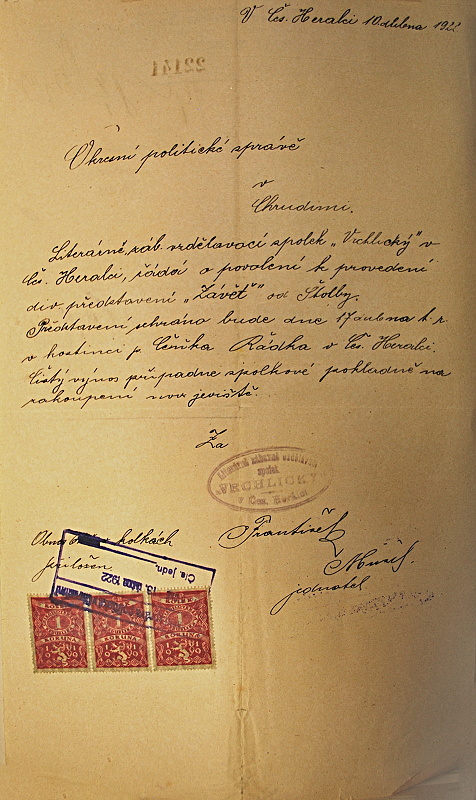 V Čes. Heralci 10. dubna 1922
22141
Okresní politické správě
v
Chrudimi.
Literárně záb. vzdělavací spolek „Vrchlický" v
Čes. Heralci, žádá o povolení k provedení
div. představení „Závěť" od Štolby.
Představení sehráno bude dne 17 dubna t. r.
v hostinci p. Čeňka Řádka v Čes. Heralci.
Čistý výnos připadne spolkové pokladně na
zakoupení nov. jeviště.
Za
Literárně zábavně vzdělávací
spolek
„VRCHLICKÝ"
v Čes. Heralci
František
jednatel
kolkách
přiložen
Čís. jedn.
1922
1 1 1
KORUNA KORUNA KORUNA
1919 1919 1919